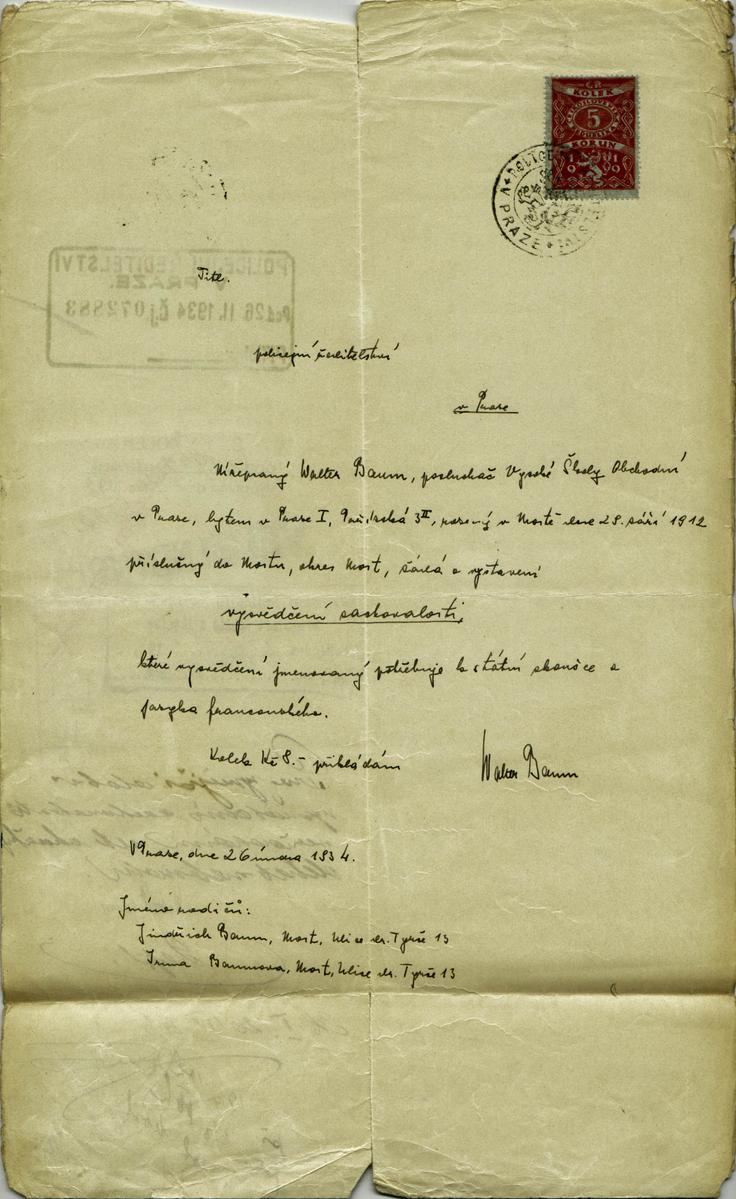 Č.P.
KOLEK
5
KORUN
1919
V PRAZE
POLICEJNÍ ŘEDITELSTVÍ
V PRAZE.
26. II. 1934 Čj 072883
Titl.
policejní ředitelství
v Praze
Nížepsaný Walter Baum, posluchač Vysoké Školy Obchodní
v Praze, bytem v Praze I, 3II, rozený v Mostě dne 28. září 1912
příslušný do Mostu, okres Most, žádá o vystavení
vysvědčení zachovalosti,
které vysvědčení jmenovaný potřebuje k státní zkoušce z
jazyka francouzského.
Kolek Kč 8.- přikládám
Walter Baum
V Praze, dne 26 února 1934.
Jméno rodičů:
Jindřich Baum, Most, Ulice dr. Tyrše 13
Irma Baumova, Most, Ulice dr. Tyrše 13